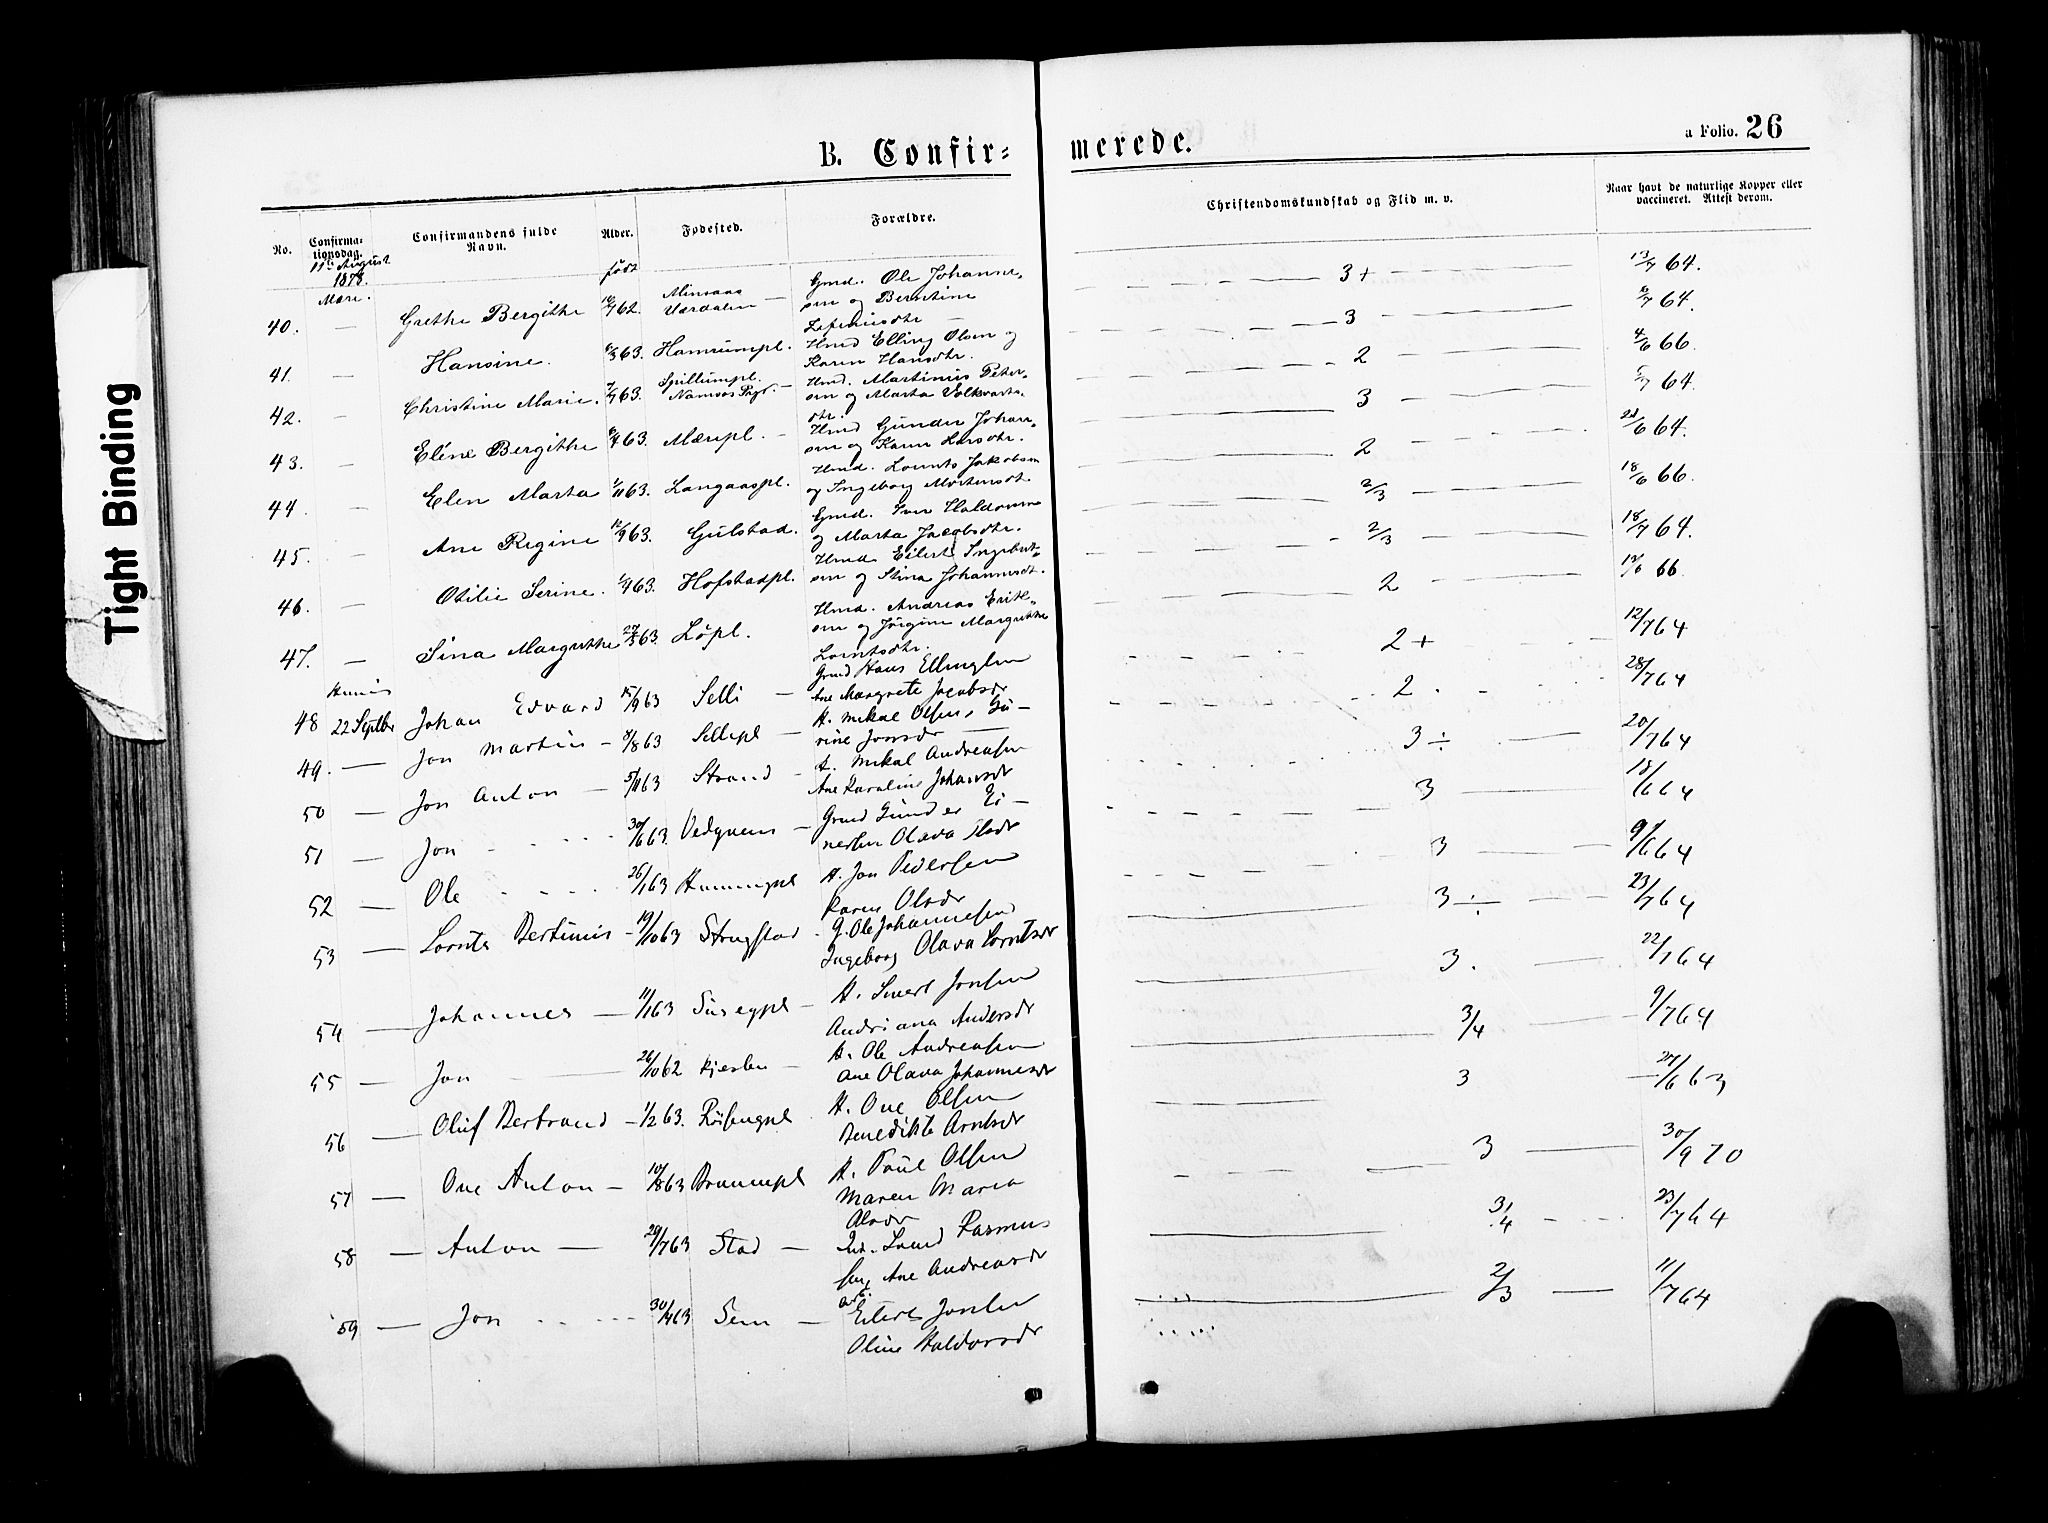 Tight Binding
B. Confir=
merede.
a Folio. 26
No.
Confirma-
tionsdag.
Confirmandens fulde
Navn.
Alder.
Fødested.
Forældre.
Christendomskundskab og Flid m. v.
Naar havt de naturlige Kopper eller
vaccineret. Attest derom.
11te August
1878.
Mære.
født
40. — Grethe Bergithe 62. Værdalen — Gmd. Ole Johanne-
sen og Berntine
3+ 13/7 64.
41. — Hansine. 6/3 63. Hamrumpl. Hmd Elling Olsen og
Karen Hansdtr.
3 6/7 64.
42. — Christine Marie. 63. Spillumpl.
Namsos — Hmd. Martinus Peter-
sen og Marta Volkvarts-
dtr.
2 4/6 66.
43. — Eline Bergithe 6/4 63. Mærepl. — Hmd Gunder Johan-
sen og Karen Larsdtr.
3 5/7 64.
44. — Elen Marta 1/11 63. Langaaspl. Hmd. Lornts Jakobsen
og Ingeborg Mortensdt
2 21/6 64.
45. — Ane Regine 12/9 63. Gulstad. Gmd. Iver Haldorsen
og Marta Jacobsdtr.
2/3 18/6 66.
46. — Otilie Serine. 1/4 63. Hofstadpl. Hmd Eilert Ingebrt-
sen og Stina Johannesdt.
2/3 18/7 64.
47. — Sina Margrethe 27/3 63. Løpl. Hmd. Andreas Erik-
sen og Jørgine Margrethe
Lorntsdtr.
2 66.
48 22 Septbr Johan Edvard 15/9 63 Selli — Gmd Hans Ellingsen
Ane Margrete Jacobsdr
2+ 12/7 64
49. — Jon Martin — 3/8 63 Sellipl — H. Mikal Olsen, Gu-
rine Jonsdr
2 28/7 64
50 — Jon Anton — 5/11 63 Strand — H. Mikal Andreasen
Ane Karoline Johansdr
3÷ — 20/7 64
51 — Jon 30/6 63. — Gmd Gunder Ei-
nersen Olava Olsdr
3 — 18/6 64
52 — Ole 26/1 63 H. Jon Pedersen
Karen Olsdr
3 — 9/6 64
53 — Lornts Bertinus — 19/10 63 Strugstad — G. Ole Johannesen
Ingeborg Olava Lorntsdr
3÷ 23/7 64
54 — Johannes — 11/1 63 — H. Sivert Jonsen
Andriana Andersdr
3. — 22/7 64
55 — Jon — 26/10 62 — H. Ole Andreasen
Ane Olava Johannesdr
3/4 — 9/7 64
56 — Oluf Bertrand — 1/2 63. H. Ove Olsen
Benedikte Arntsdr
3 27/6 63
57 — Ove Anton — 10/8 63 H. Paul Olsen
Maren Maria
Olsdr
3 — 30/9 70
58 — Anton — 29/7 63 Stad — Svend Rasmus
sen, Ane Andreasdr
3/4 23/7 64
59 — Jon 30/4 63 Sem — Eilert Jonsen
Oline Haldorsdr
2/3 — 11/7 64